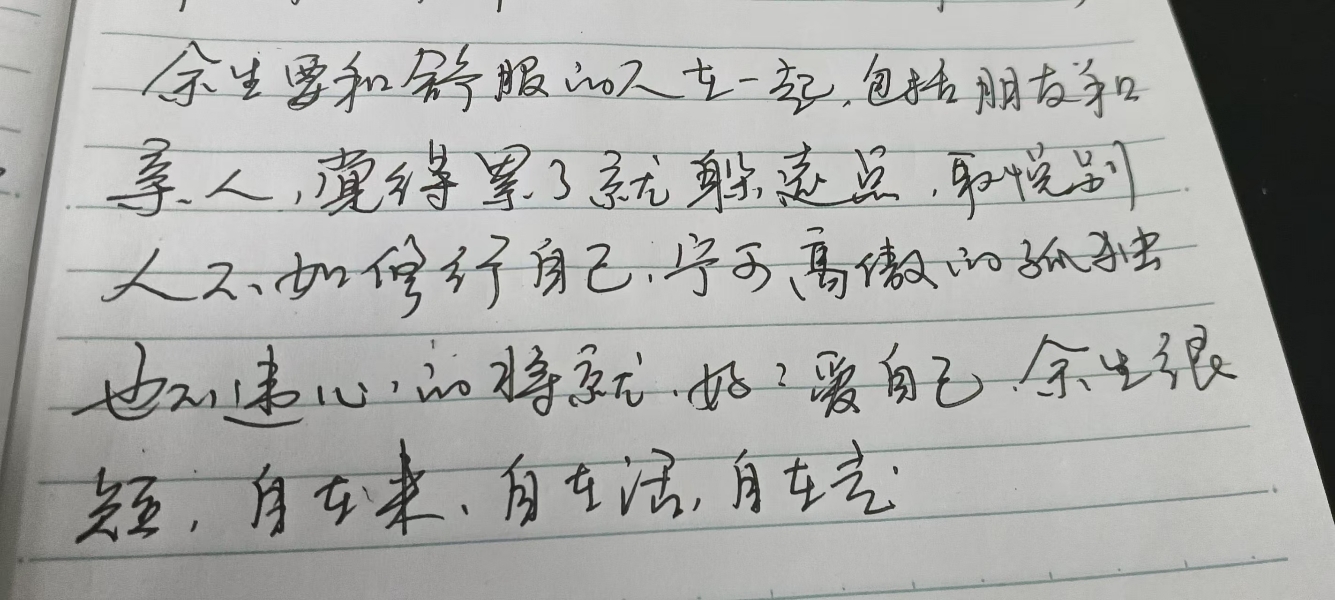 余生要和舒服的人在一起,包括朋友和
亲人,觉得累了就躲远点,取悦别
人不如修行自己,宁可高傲的孤独
也不违心的将就,好好爱自己,余生很
短,自在来、自在活,自在走